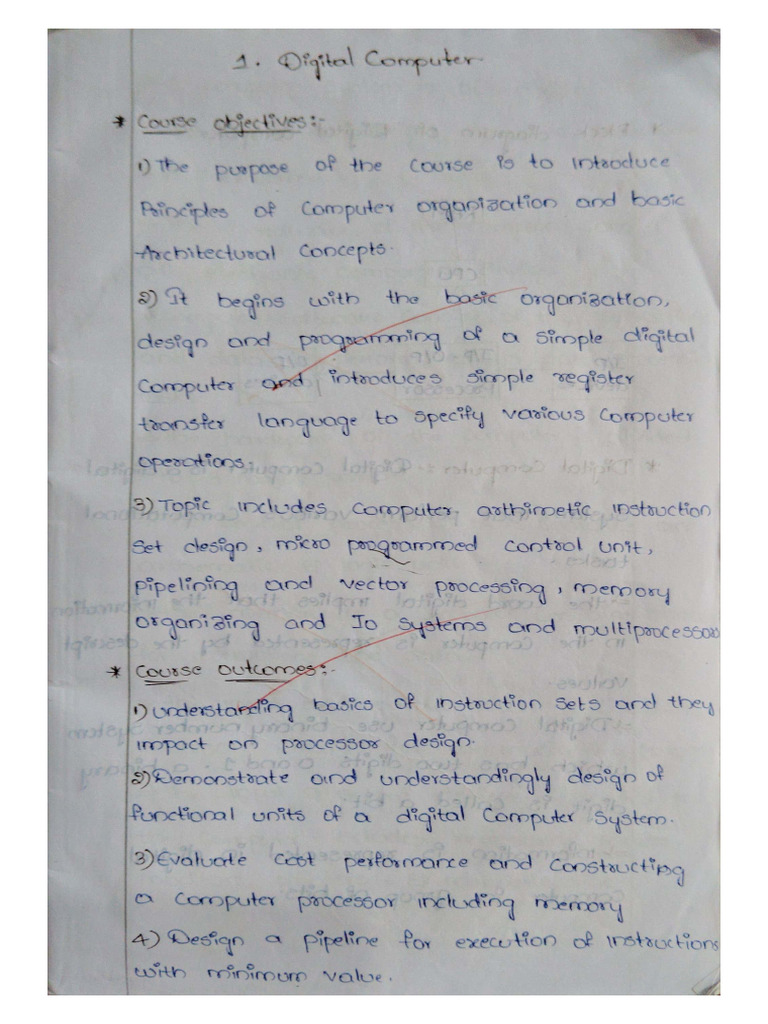 1. Digital Computer
* Course objectives:-
1) The purpose of the course is to introduce
Principles of computer organization and basic
Architectural Concepts.
2) It begins with the basic organization,
design and programming of a simple digital
Computer and introduces simple register
transfer language to specify various Computer
operations.
3) Topic includes computer arthimetic instruction
set design, micro programmed control unit,
pipelining and vector processing, memory
organizing and Io systems and multiprocessors
* Course outcomes:-
1) understanding basics of instruction sets and they
impact on processor design.
2) Demonstrate and understandingly design of
functional units of a digital Computer System.
3) Evaluate cost performance and constructing
a computer processor including memory
4) Design a pipeline for execution of instructions
with minimum value.